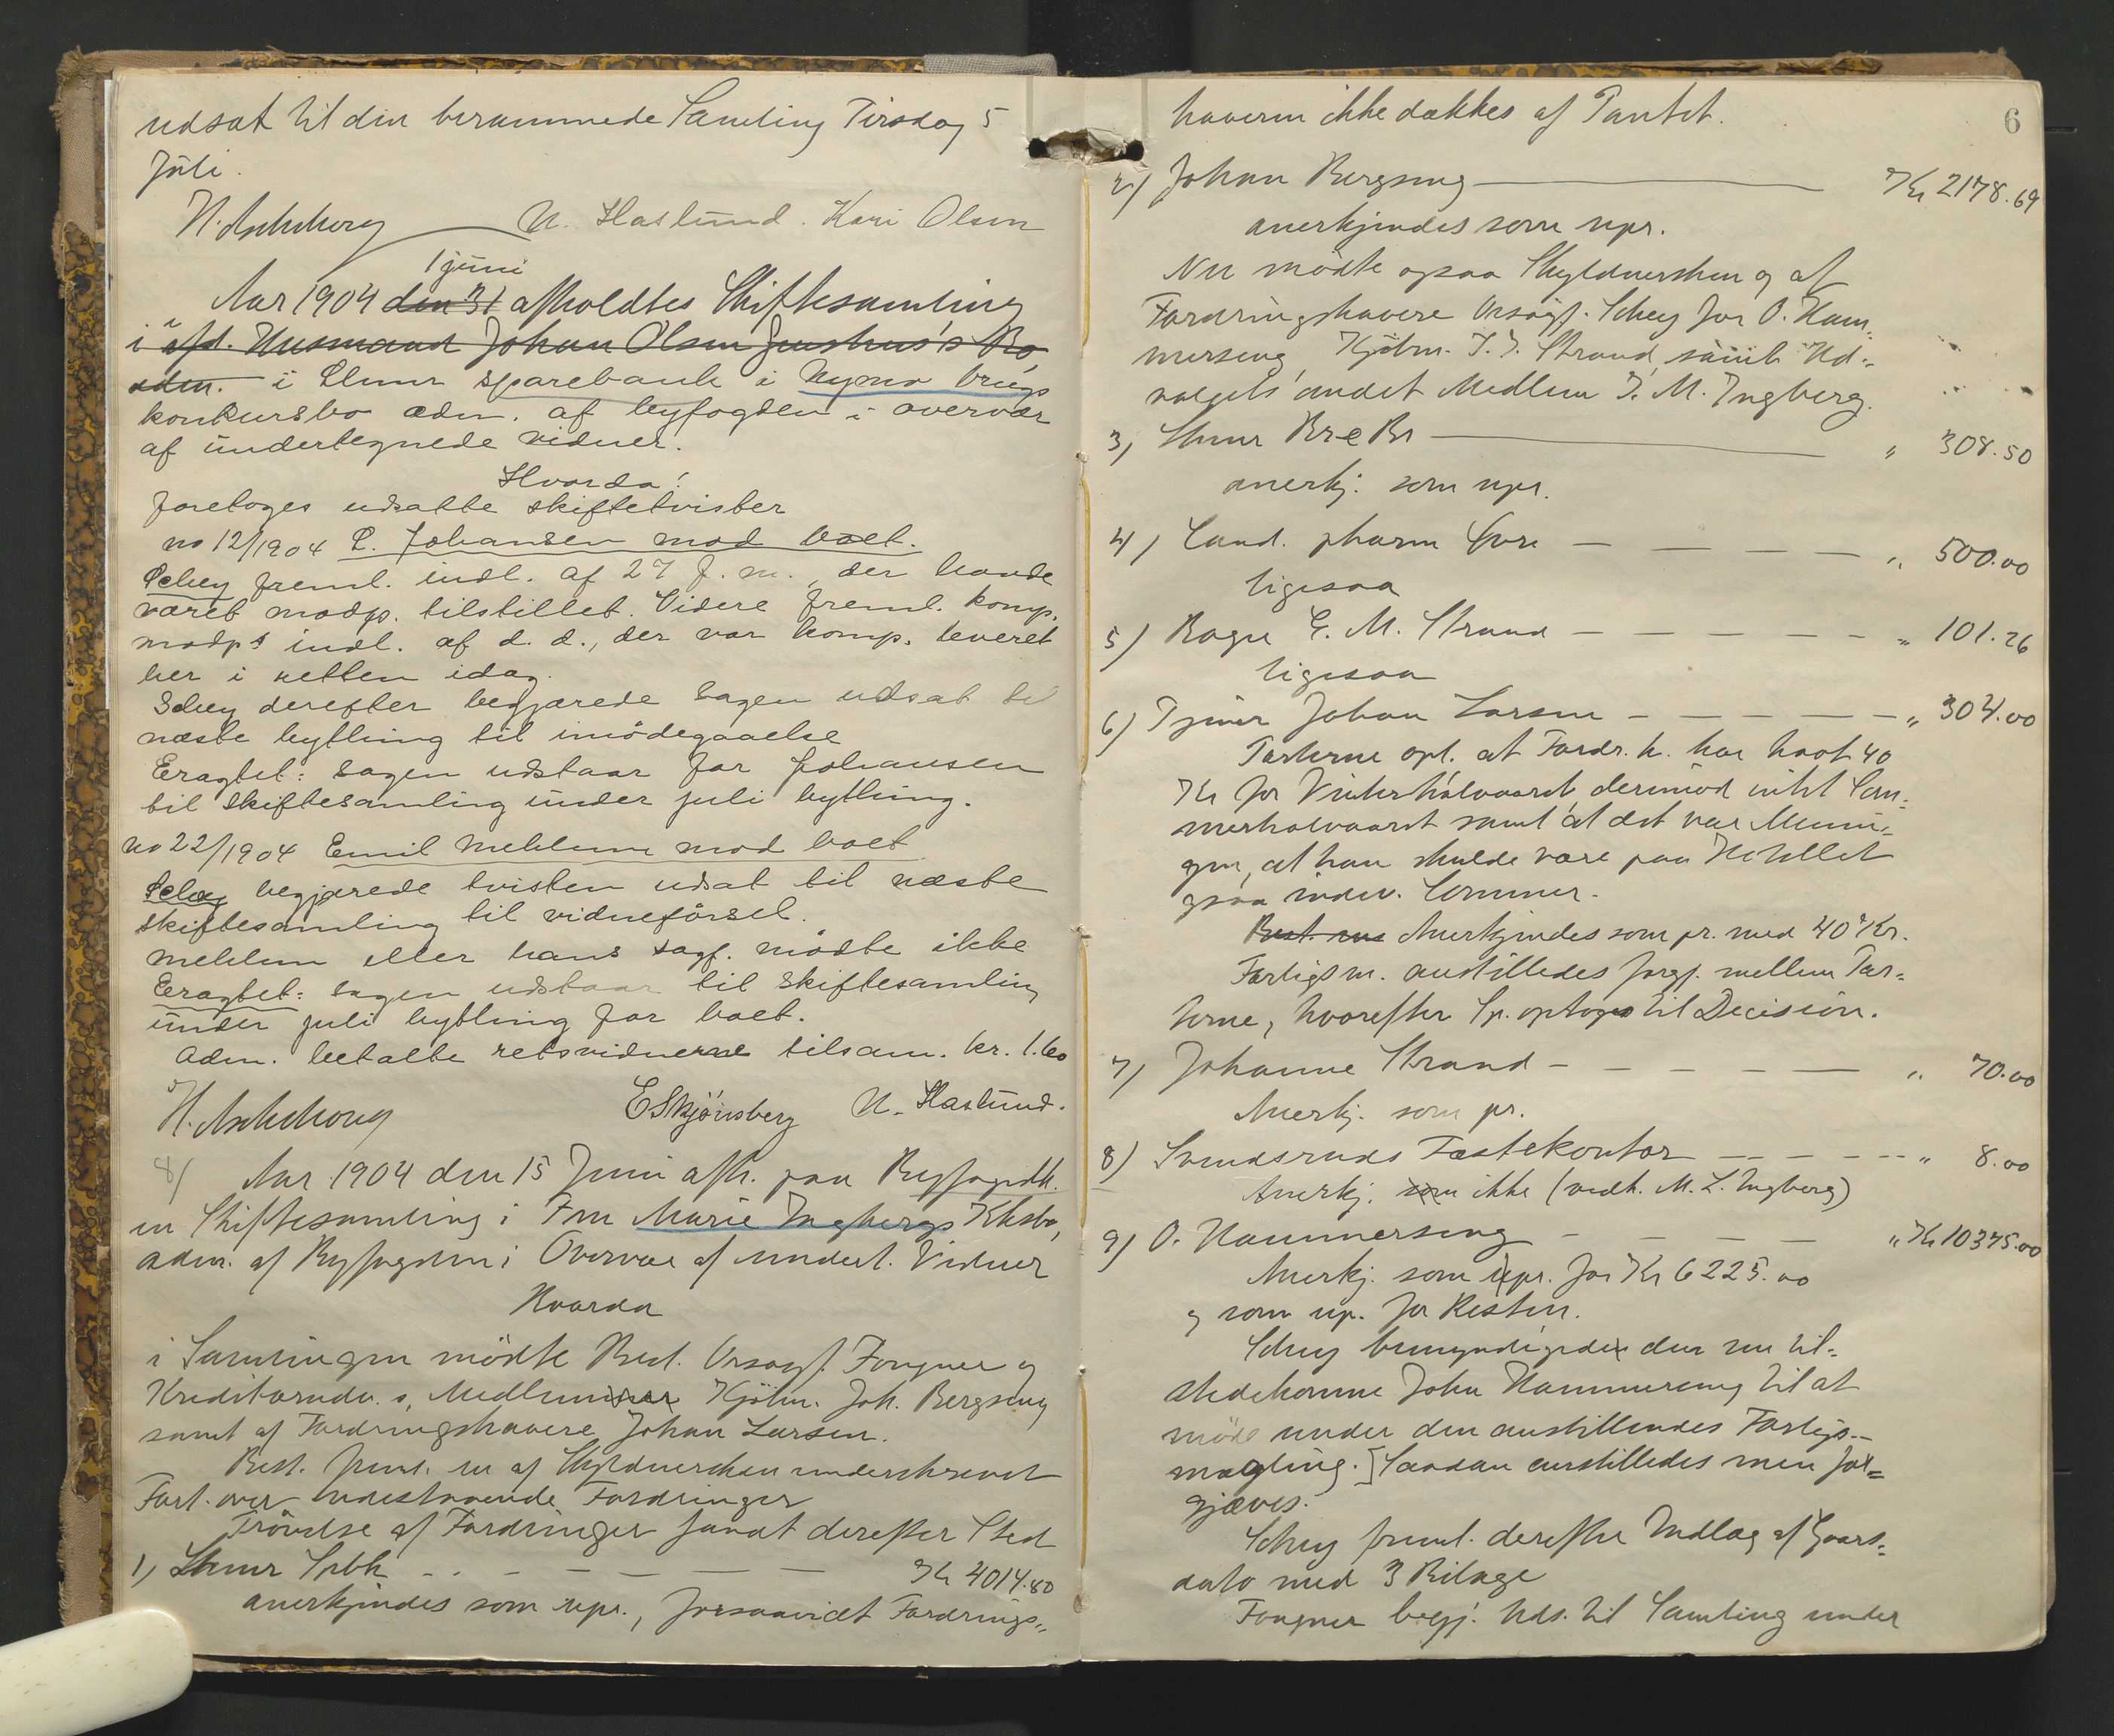 udsat til den berammede Samling Tirsdag 5
Juli.
H. Aschehoug N. Haslund. Kari Olsen
1 juni
Aar 1904 den 31 afholdtes Skiftesamling
i afd. Husmand Johan Olsen Bo
oden. i Elverum sparebank i Nymo brugs
konkursbo adm. af byfogden i overvær
af undertegnede vidner.
Hvorda:
foretoges udsatte skiftetvister
no 12/1904 P. Johansen mod boet.
Schey freml. indl. af 27 f. m., der havde
været modp. tilstillet. Videre freml. komp.
modps indl. af d. d., der var komp. leveret
her i retten idag.
Schey derefter begjærede sagen udsat til
næste bytling til imödegaaelse
Eragtet: sagen udstaar for Johansen
til skiftesamling under juli bytling.
no 22/1904 Emil Mehlum mod boet
Schey begjærede tvisten udsat til næste
skiftesamling til vidneförsel.
Mehlum eller hans sagf. mödte ikke
Eragtet: sagen udstaar til skiftesamling
under juli bytling for boet.
Adm. betalte retsvidnerne tilsam. kr. 1.60
H. Aschehoug E Skjönsberg N. Haslund.
8/ Aar 1904 den 15 Juni afh. paa Byfogdk.
en Skiftesamling i Fru Marie Ingbergs Kksbo,
adm. af Byfogden i Overvær af undert. Vidner
Hvorda
i Samlingen mödte Best. Orsagf. Fougner og
Kreditorudv. s, Medlemmer Kjöbm. Joh. Bergseng
samt af Fordringshavere Johan Larsen.
Best. freml. en af Skyldnersken underskrevet
Fort. over indestaaende Fordringer
Prövelse af Fordringer fandt derefter Sted
1) Elverum Spbk - - - - - Kr 4014.80
anerkjendes som upr., forsaavidt Fordrings-
6
haveren ikke dækkes af Pantet.
2) Johan Bergseng — Kr 2178.69
anerkjendes som upr.
Nu mödte ogsaa Skyldnersken og af
Fordringshavere Orsagf. Schey for O. Ham-
merseng, Kjöbm. T. T. Strand, samt Ud-
valgets andet Medlem T. M. Ingberg.
3) Br e Br — " 308.50
anerkj. som upr.
4) Cand. pharm — — — — " 500.00
ligesaa
5) Bager G. M. Strand — — — — — " 101.26
ligesaa
6) Tjener Johan Larsen — — — — — " 304.00
Parterne opl. at Fordr. h. har havt 40
Kr for Vinterhalvaaret, derimod intet Som-
merhalvaaret samt at det var Menin-
gen, at han skulde være paa Hotellet
ogsaa indev. Sommer.
Best. Anerkjendes som pr. med 40 Kr.
Forligsm. anstilledes forgj. mellem Par-
terne, hvorefter Sp. optoges til Decision.
7) Johanne Strand — — — — — " 70.00
Anerkj. som pr.
8) Svendsruds Fæstekontor — — — — — " 8.00
Anerkj. som ikke (vedk. M. L. Ingberg)
9) O. Hammerseng — — — — " Kr 10375.00
Anerkj. som upr. for Kr 6225.00
og som up. for Resten.
Schey bemyndigede den nu til-
stedekomne John Hammerseng til at
möde under den anstillendes Forligs-
mægling. Saadan anstilledes men for-
gjæves.
Schey freml. derefter Indlæg af Gaars-
dato med 3 Bilage
Fougner begj. Uds. til Samling under